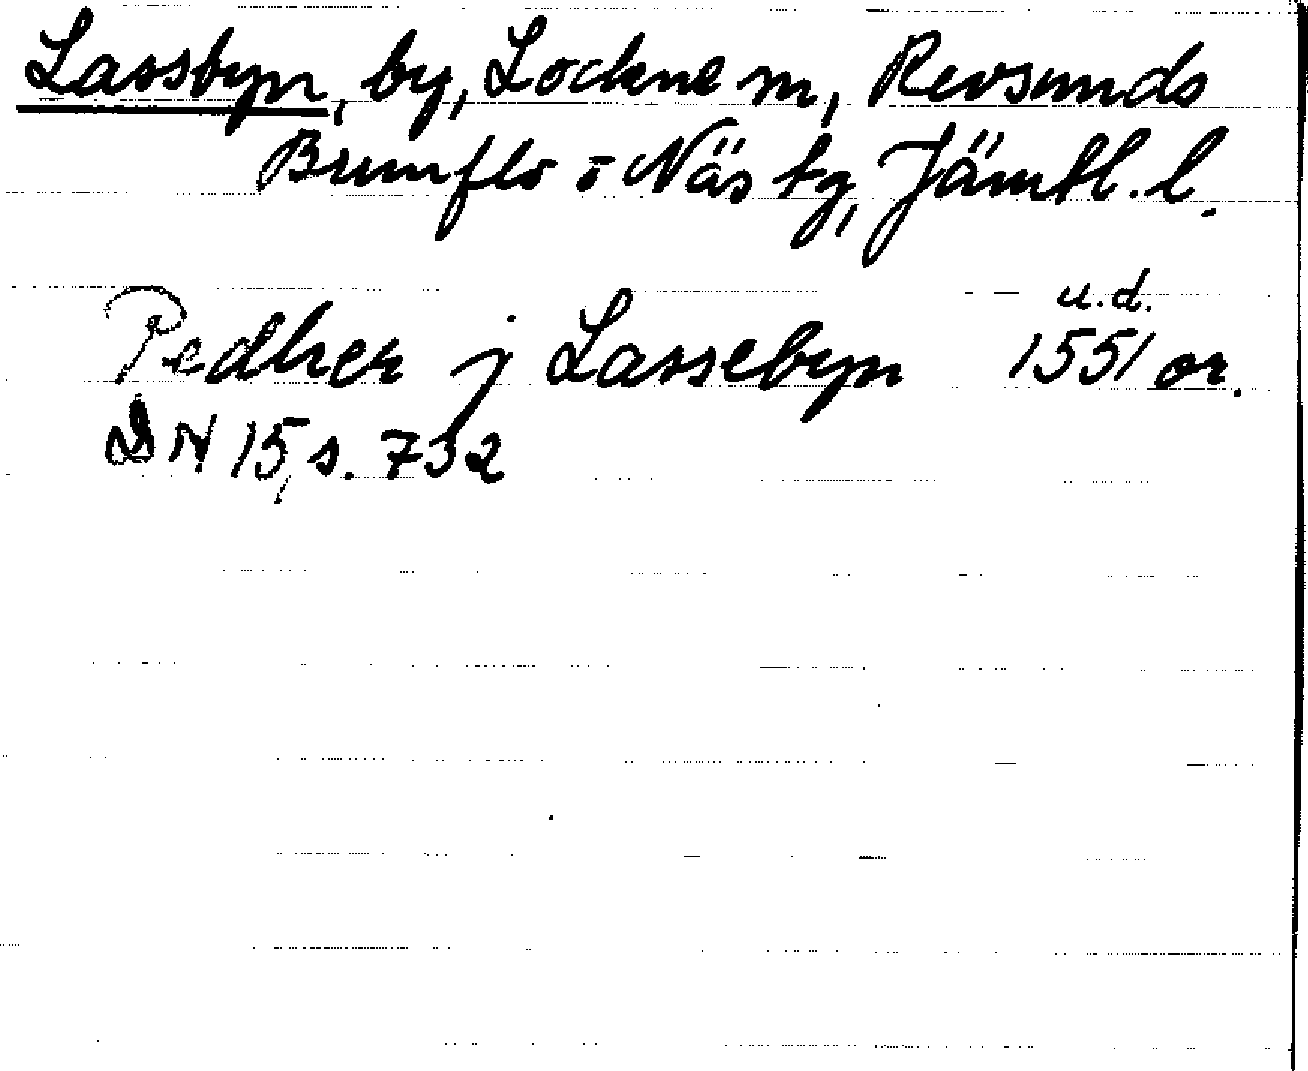 Lassbyn, by, Lockne sn, Revsunds
Brunflo o Näs tg, Jämtl. l.
u.d.
Pedher j Lassebyn 1551 or.
DN 15, s. 732